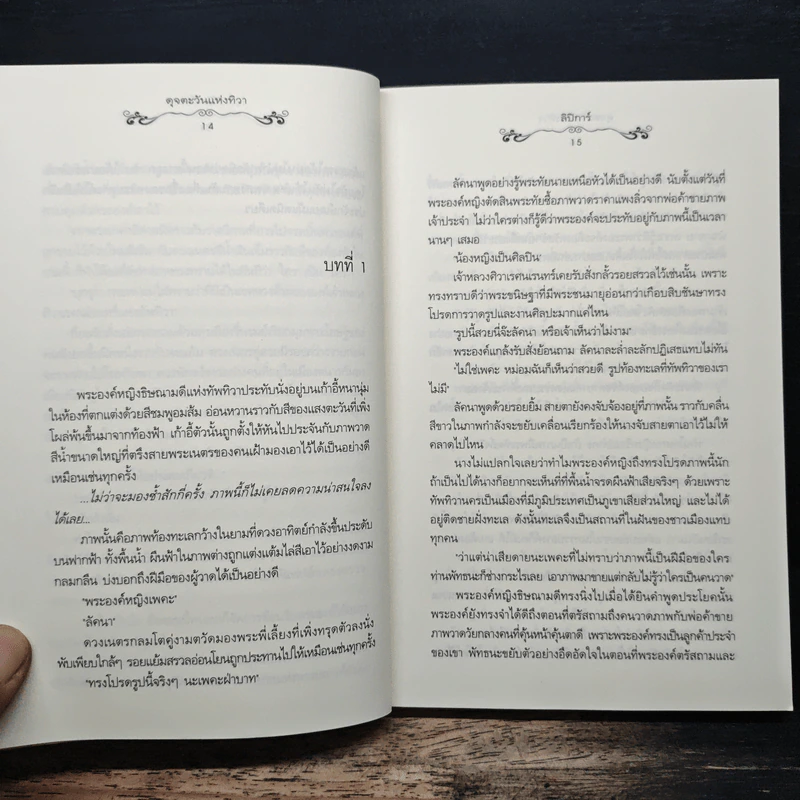 ดุจตะวันแห่งทิวา
14
บทที่ 1
พระองค์หญิงธิษณามดีแห่งทัพทิวาประทับนั่งอยู่บนเก้าอี้หนานุ่ม
ในห้องที่ตกแต่งด้วยสีชมพูอมส้ม อ่อนหวานราวกับสีของแสงตะวันที่เพิ่ง
โผล่พ้นขึ้นมาจากท้องฟ้า เก้าอี้ตัวนั้นถูกตั้งให้หันไปประจันกับภาพวาด
สีน้ำขนาดใหญ่ที่ตรึงสายพระเนตรของคนเฝ้ามองเอาไว้ได้เป็นอย่างดี
เหมือนเช่นทุกครั้ง
...ไม่ว่าจะมองซ้ำสักกี่ครั้ง ภาพนี้ก็ไม่เคยลดความน่าสนใจลง
ได้เลย...
ภาพนั้นคือภาพท้องทะเลกว้างในยามที่ดวงอาทิตย์กำลังขึ้นประดับ
บนฟากฟ้า ทั้งพื้นน้ำ ผืนฟ้าในภาพต่างถูกแต่งแต้มไล่สีเอาไว้อย่างงดงาม
กลมกลืน บ่งบอกถึงฝีมือของผู้วาดได้เป็นอย่างดี
"พระองค์หญิงเพคะ"
"ลัคนา"
ดวงเนตรกลมโตคู่งามตวัดมองพระพี่เลี้ยงที่เพิ่งทรุดตัวลงนั่ง
พับเพียบใกล้ๆ รอยแย้มสรวลอ่อนโยนถูกประทานไปให้เหมือนเช่นทุกครั้ง
"ทรงโปรดรูปนี้จริงๆ นะเพคะฝ่าบาท"
ลิปิการ์
15
ลัคนาพูดอย่างรู้พระทัยนายเหนือหัวได้เป็นอย่างดี นับตั้งแต่วันที่
พระองค์หญิงตัดสินพระทัยซื้อภาพวาดราคาแพงลิ่วจากพ่อค้าขายภาพ
เจ้าประจำ ไม่ว่าใครต่างก็รู้ดีว่าพระองค์จะประทับอยู่กับภาพนี้เป็นเวลา
นานๆ เสมอ
'น้องหญิงเป็นศิลปิน'
เจ้าหลวงศิวาเรศนเรนทร์เคยรับสั่งกลั้วรอยสรวลไว้เช่นนั้น เพราะ
ทรงทราบดีว่าพระขนิษฐาที่มีพระชนมายุอ่อนกว่าเกือบสิบชันษาทรง
โปรดการวาดรูปและงานศิลปะมากแค่ไหน
"รูปนี้สวยนี่จ๊ะลัคนา หรือเจ้าเห็นว่าไม่งาม"
พระองค์แกล้งรับสั่งย้อนถาม ลัคนาละล่ำละลักปฏิเสธแทบไม่ทัน
"ไม่ใช่เพคะ หม่อมฉันก็เห็นว่าสวยดี รูปท้องทะเลที่ทัพทิวาของเรา
ไม่มี"
ลัคนาพูดด้วยรอยยิ้ม สายตายังคงจับจ้องอยู่ที่ภาพนั้น ราวกับคลื่น
สีขาวในภาพกำลังจะขยับเคลื่อนเรียกร้องให้นางจับสายตาเอาไว้ไม่ให้
คลาดไปไหน
นางไม่แปลกใจเลยว่าทำไมพระองค์หญิงถึงทรงโปรดภาพนี้นัก
ถ้าเป็นไปได้นางก็อยากจะเห็นที่ที่พื้นน้ำจรดผืนฟ้าเสียจริงๆ ด้วยเพราะ
ทัพทิวานครเป็นเมืองที่มีภูมิประเทศเป็นภูเขาเสียส่วนใหญ่ และไม่ได้
อยู่ติดชายฝั่งทะเล ดังนั้นทะเลจึงเป็นสถานที่ในฝันของชาวเมืองแทบ
ทุกคน
"ว่าแต่น่าเสียดายนะเพคะที่ไม่ทราบว่าภาพนี้เป็นฝีมือของใคร
ท่านพัทธนะก็ช่างกระไรเลย เอาภาพมาขายแต่กลับไม่รู้ว่าใครเป็นคนวาด"
พระองค์หญิงธิษณามดีทรงนิ่งไปเมื่อได้ยินคำพูดประโยคนั้น
พระองค์ยังทรงจำได้ดีถึงตอนที่ตรัสถามถึงคนวาดภาพกับพ่อค้าขาย
ภาพวาดวัยกลางคนที่คุ้นหน้าคุ้นตาดี เพราะพระองค์ทรงเป็นลูกค้าประจำ
ของเขา พัทธนะขยับตัวอย่างอึดอัดใจในตอนที่พระองค์ตรัสถามและ